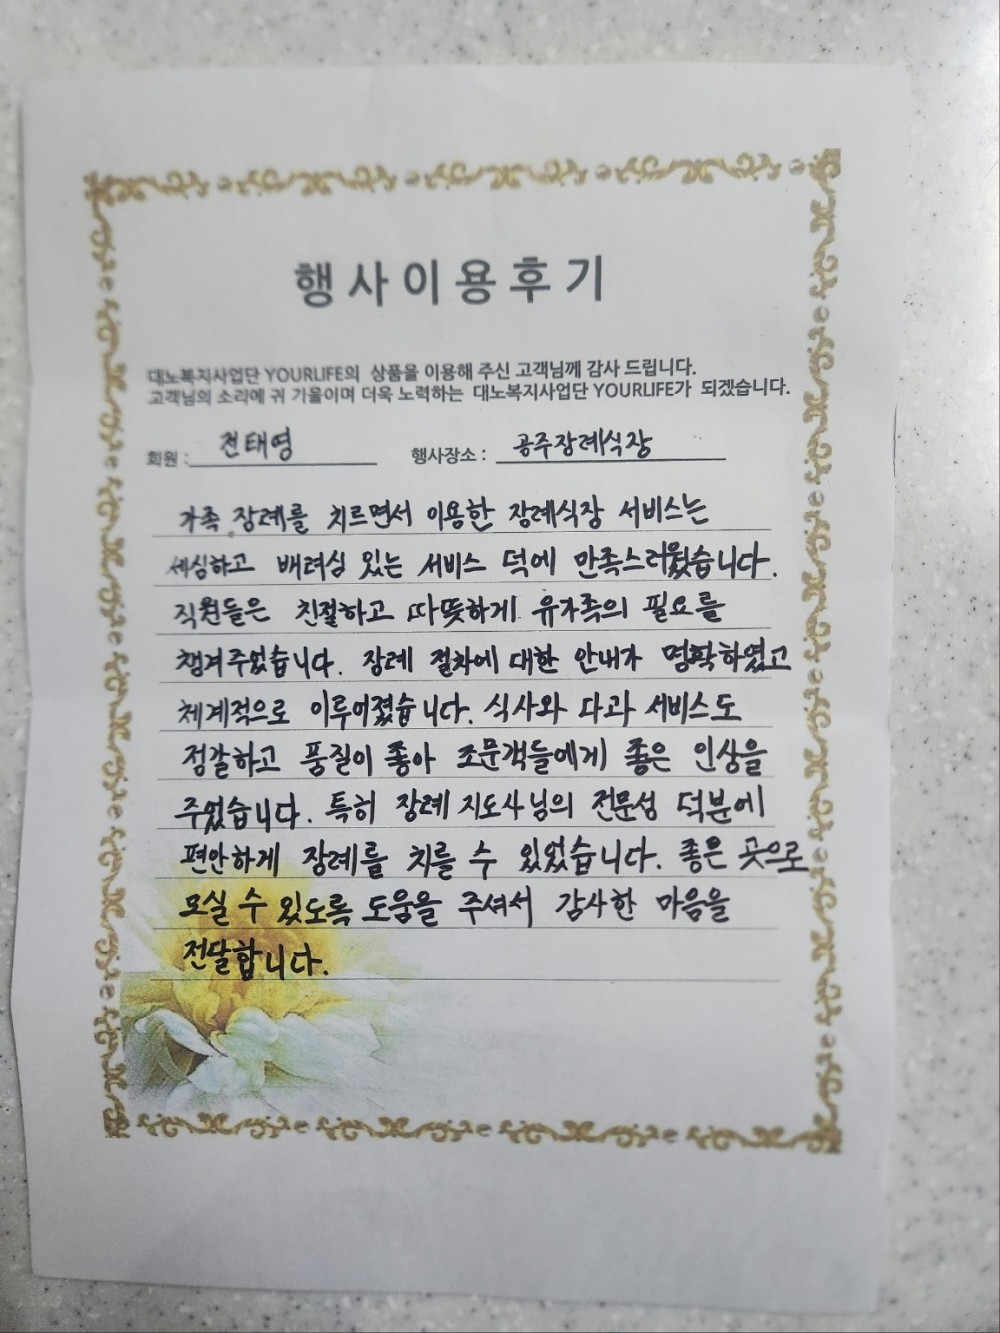 행사이용후기
대노복지사업단 YOURLIFE의 상품을 이용해 주신 고객님께 감사 드립니다.
고객님의 소리에 귀 기울이며 더욱 노력하는 대노복지사업단 YOURLIFE가 되겠습니다.
회원 : 전태영 행사장소 : 공주장례식장
가족 장례를 치르면서 이용한 장례식장 서비스는
세심하고 배려심 있는 서비스 덕에 만족스러웠습니다.
직원들은 친절하고 따뜻하게 유가족의 필요를
챙겨주었습니다. 장례 절차에 대한 안내가 명확하였고
체계적으로 이루어졌습니다. 식사와 다과 서비스도
정갈하고 품질이 좋아 조문객들에게 좋은 인상을
주었습니다. 특히 장례 지도사님의 전문성 덕분에
편안하게 장례를 치를 수 있었습니다. 좋은 곳으로
모실 수 있도록 도움을 주셔서 감사한 마음을
전달합니다.